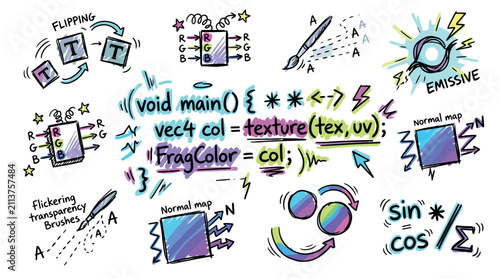 FLIPPING
T T T
R R
G G
B B
A A
A A
A
EMISSIVE
void main() { * * <-->
vec4 col = texture(tex, uv);
FragColor = col;
}
R R
G G
B B
Normal map
N
Flickering
transparency
Brushes
A A
A
Normal map
N
sin *
cos / Σ
Adobe Stock | #2113757484